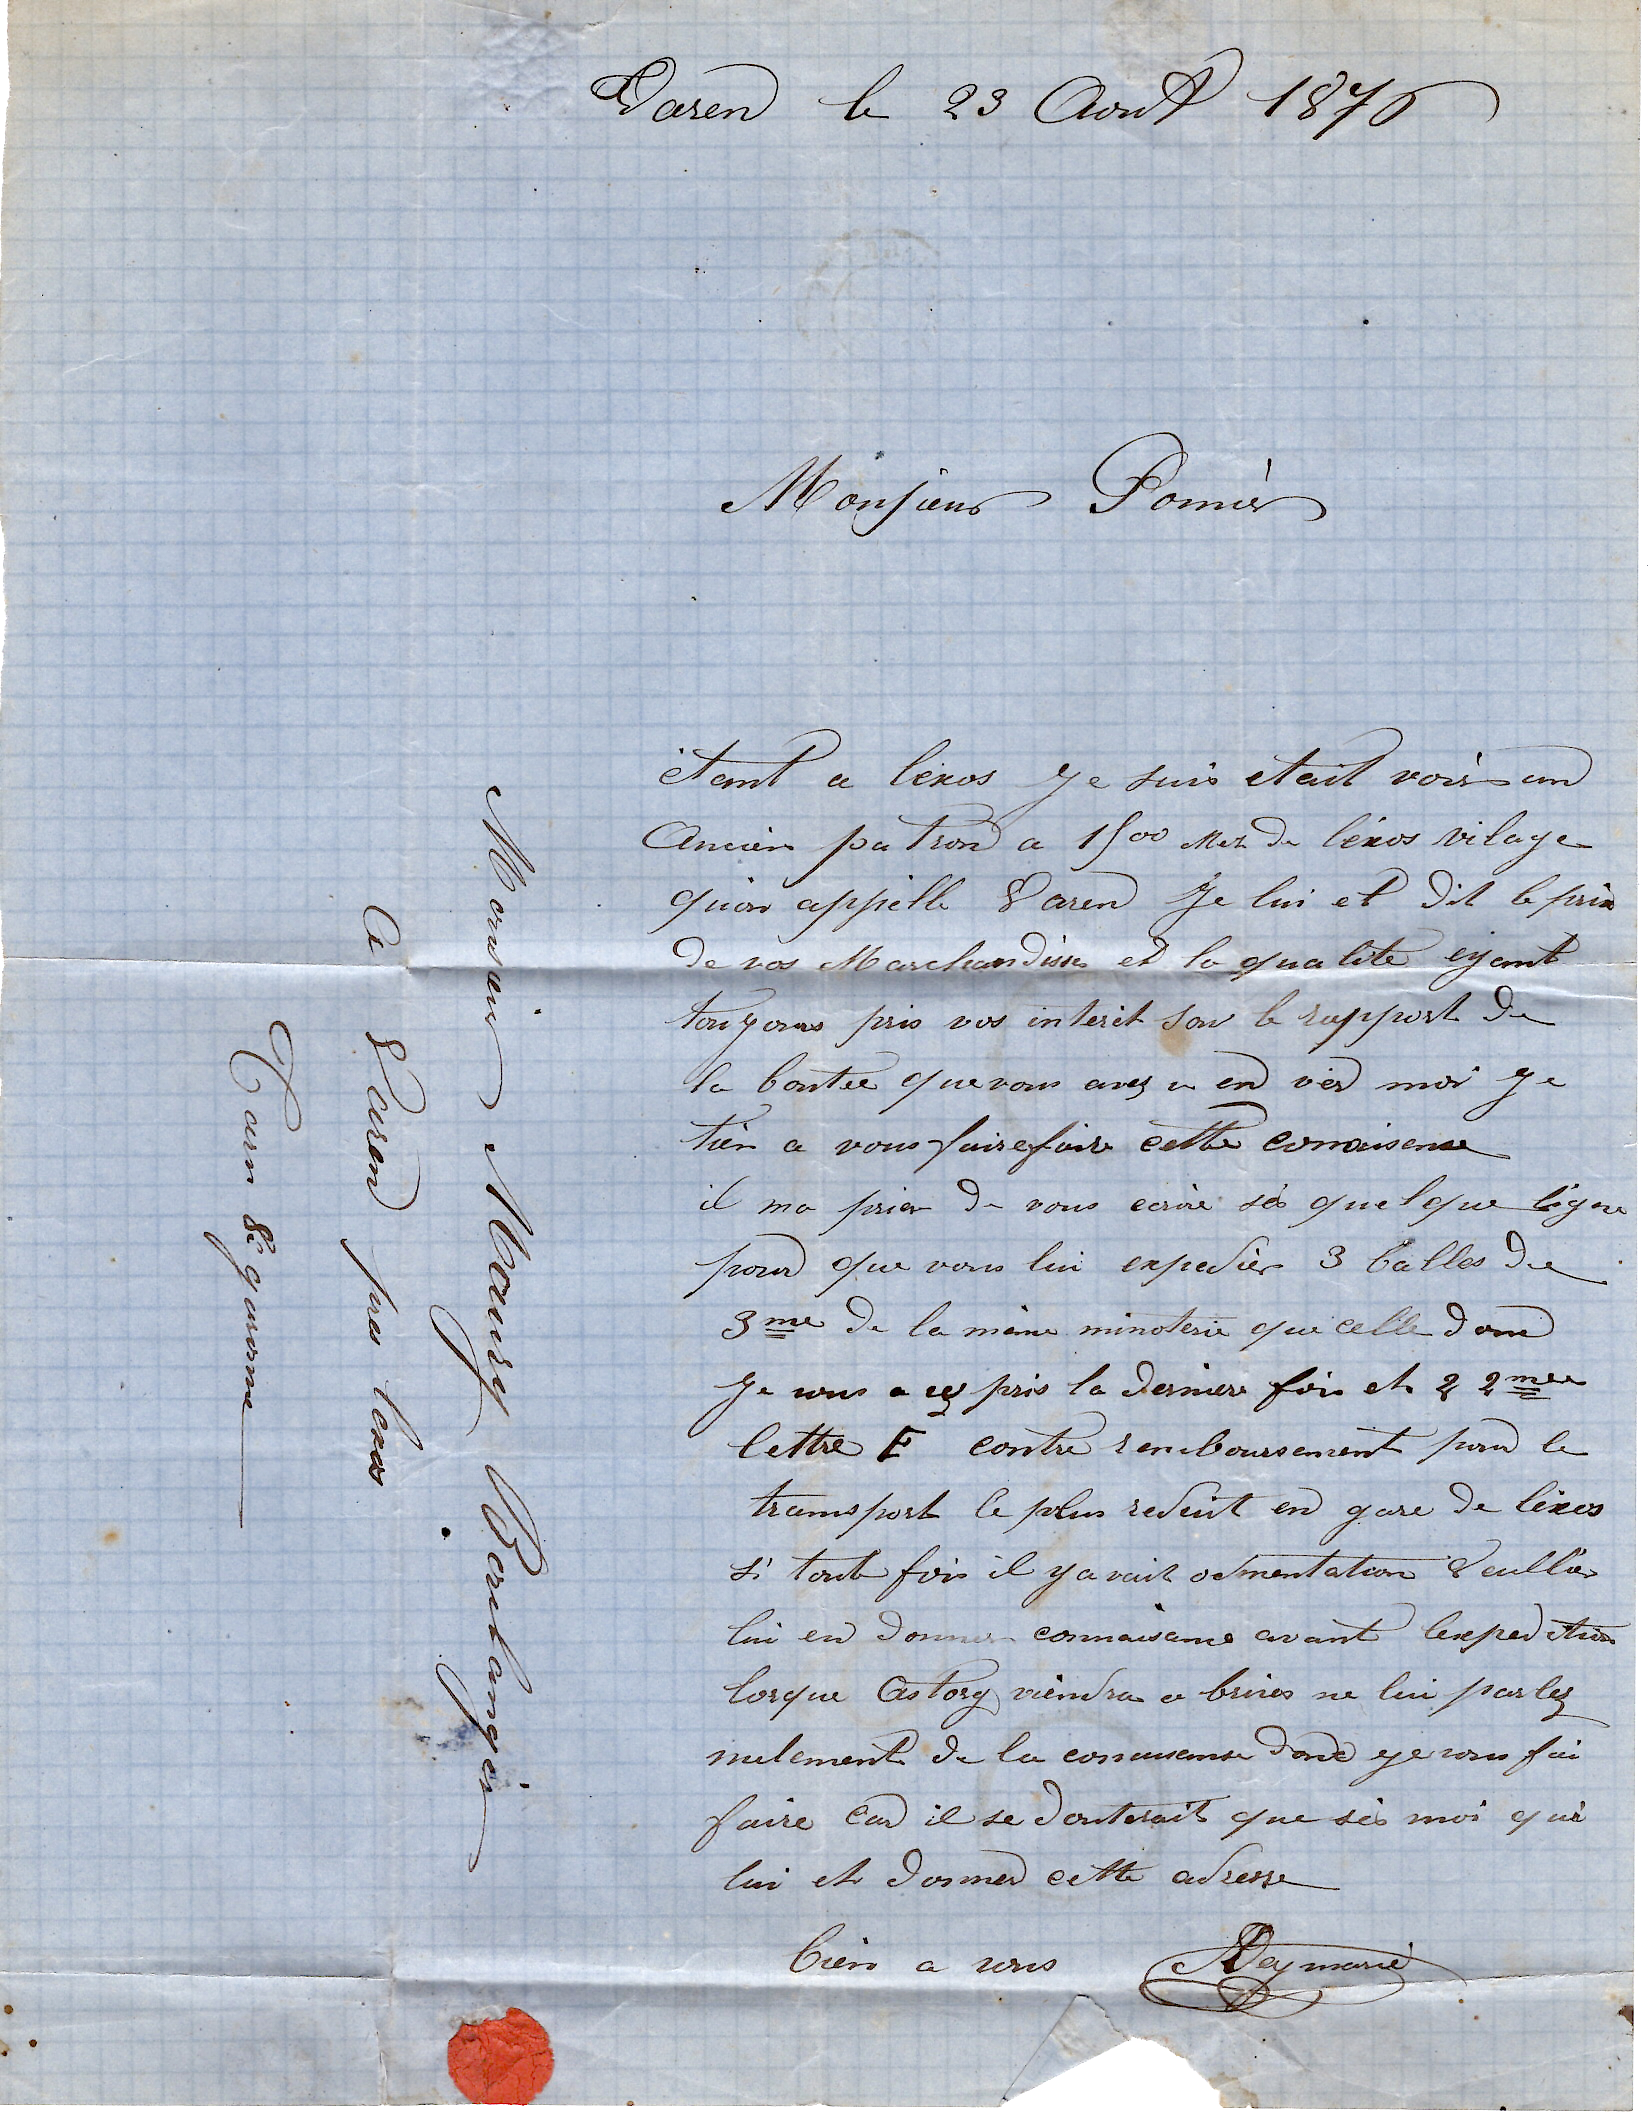 Varen le 23 Aout 1876
Monsieur Pomier
étant a léxos je suis etait voir un
Ancien patron a 1500 Met de léxos vilage
quon appelle Varen Je lui et dit le prix
de vos Marchandises et la qualite eyant
toujours pris vos interêt sou le rapport de
la bontee que vous avez u en ver moi je
tien a vous faire faire cette
il ma prier de vous ecrire sês quelque ligne
pour que vous lui expedier 3 balles de
3me de la même minoterie que celle dont
Je vous a ey pris la derniere fois et 2 2mee
lettre F contre remboursement pour le
transport le plus reduit en gare de léxos
si toute fois il y avait Veullier
lui en donner connaisance avant lexpedition
lorque Astorg viendra a brives ne lui parlez
nulement de la donc je vous fai
faire car il se douterait que sês moi qui
lui et donner cette adresse
bien a vous Deymarie
Monsieur Maury Boulanger
A Varen pres lexos
Tarn & garonne